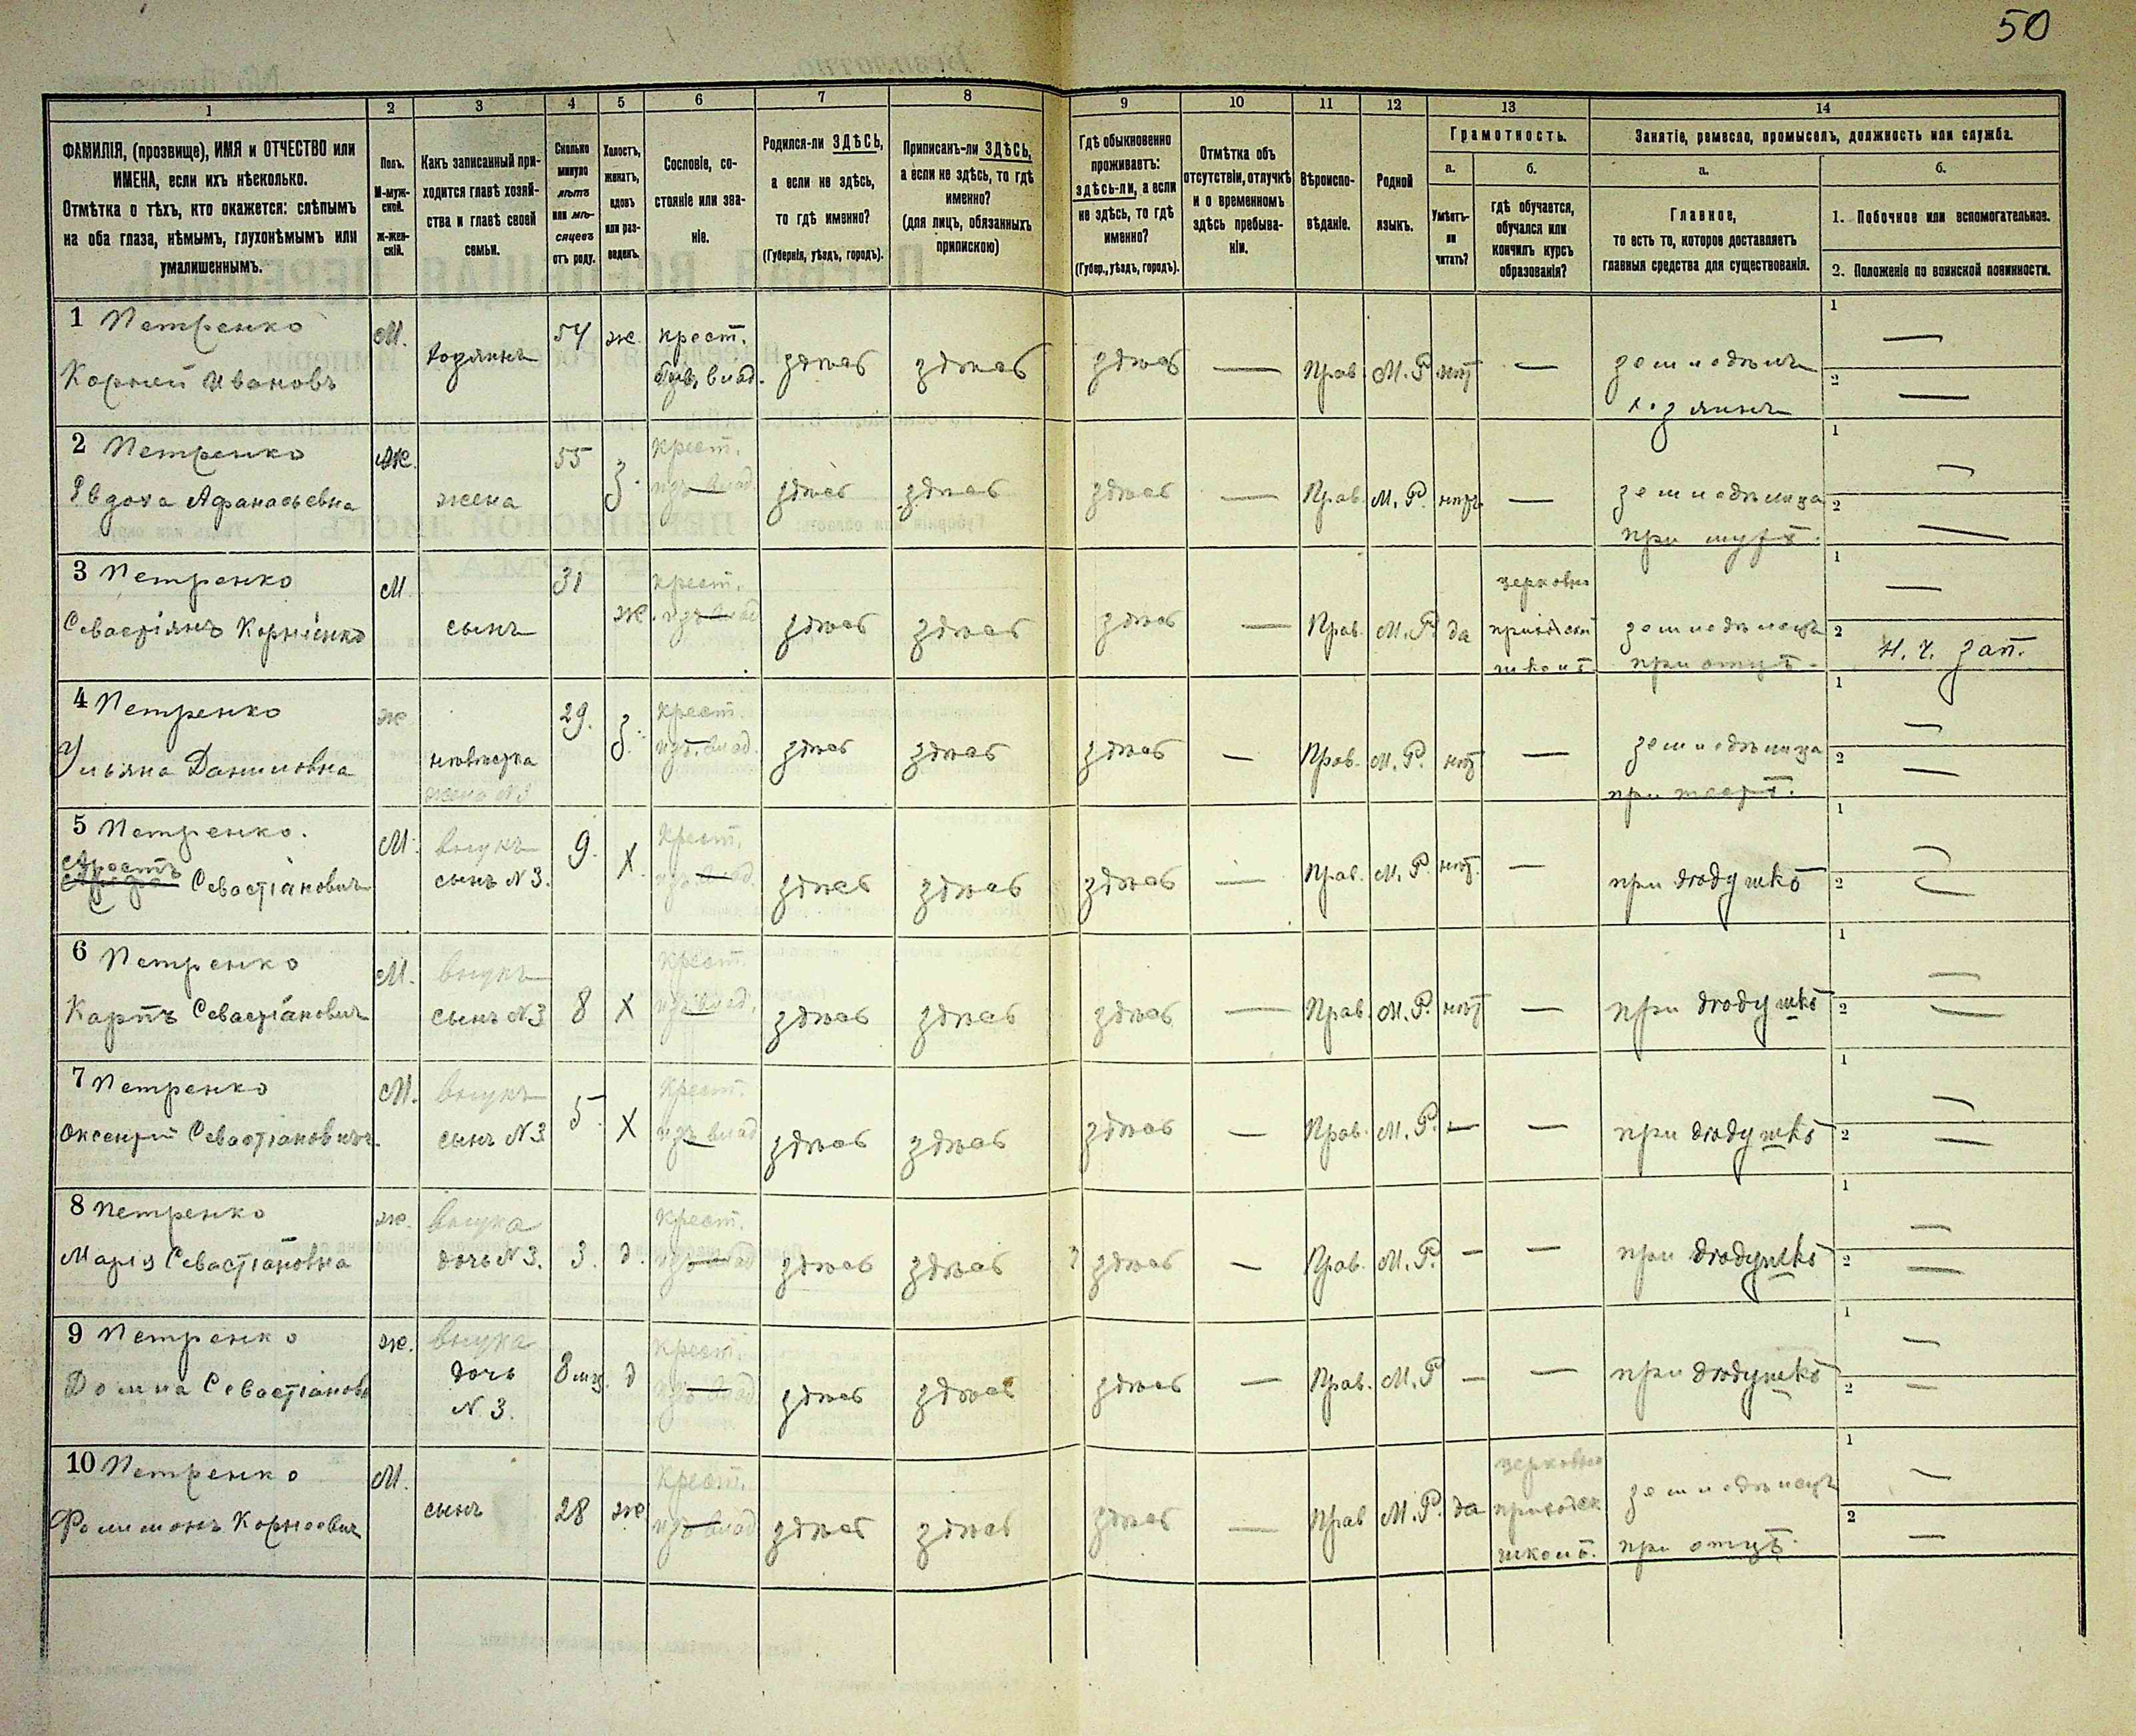 50
1
2
3
4
5
6
7
8
9
10
11
12
13
14
ФАМИЛІЯ, (прозвище), ИМЯ и ОТЧЕСТВО или
ИМЕНА, если ихъ нѣсколько.
Отмѣтка о тѣхъ, кто окажется: слѣпымъ
на оба глаза, нѣмымъ, глухонѣмымъ или
умалишеннымъ.
Полъ.
М-муж-
ской.
ж-жен-
скій.
Какъ записанный при-
ходится главѣ хозяй-
ства и главѣ своей
семьи.
Сколько
минуло
лѣтъ
или мѣ-
сяцевъ
отъ роду.
Холостъ,
женатъ,
вдовъ
или раз-
веденъ.
Сословіе, со-
стояніе или зва-
ніе.
Родился-ли ЗДѢСЬ,
а если не здѣсь,
то гдѣ именно?
(Губернія, уѣздъ, городъ).
Приписанъ-ли ЗДѢСЬ,
а если не здѣсь, то гдѣ
именно?
(для лицъ, обязанныхъ
припискою)
Гдѣ обыкновенно
проживаетъ:
здѣсь-ли, а если
не здѣсь, то гдѣ
именно?
(Губер., уѣздъ, городъ).
Отмѣтка объ
отсутствіи, отлучкѣ
и о временномъ
здѣсь пребыва-
ніи.
Вѣроиспо-
вѣданіе.
Родной
языкъ.
Грамотность.
а.
Умѣетъ-
ли
читать?
б.
гдѣ обучается,
обучался или
кончилъ курсъ
образованія?
Занятіе, ремесло, промыселъ, должность или служба.
а.
Главное,
то есть то, которое доставляетъ
главныя средства для существованія.
б.
1. Побочное или вспомогательное.
2. Положеніе по воинской повинности.
1 Петренко
Корней Ивановъ
М.
хозяинъ
54
ж.
крест.
быв. влад.
здѣсь
здѣсь
здѣсь
—
Прав.
М. Р.
нѣт
—
земледѣлецъ
хозяинъ
1 —
2 —
2 Петренко
Евдоха Афанасьевна
ж.
жена
55
З.
крест.
изъ влад.
здѣсь
здѣсь
здѣсь
—
Прав.
М. Р.
нѣтъ
—
земледѣлица
при мужѣ.
1 —
2 —
3 Петренко
Севастіянъ Корніенко
М
сынъ
31
ж.
крест.
изъ влад
здѣсь
здѣсь
здѣсь
—
Прав.
М. Р.
да
церковно
приходской
школѣ
земледѣлецъ
при отцѣ.
1 —
2 Н. Ч. зап.
4 Петренко
Ульяна Даниловна
ж
невѣстка
жена N3
29.
З.
крест.
изъ влад.
здѣсь
здѣсь
здѣсь
—
Прав.
М. Р.
нѣт
—
земледѣлица
1 —
2 —
5 Петренко.
Севастіановичъ
М.
внукъ
сынъ N 3.
9.
Х
Крест.
изъ влад.
здѣсь
здѣсь
здѣсь
—
Прав.
М. Р.
нѣт.
—
при дѣдушкѣ
1 —
2 —
6 Петренко
Карпъ Севастіановичъ
М.
внукъ
сынъ N3
8
Х
Крест.
изъ влад.
здѣсь
здѣсь
здѣсь
—
Прав.
М. Р.
нѣт
—
при дѣдушкѣ
1 —
2 —
7 Петренко
Оксентій Севастіановичъ.
М.
внукъ
сынъ N3
5.
Х
Крест.
изъ влад
здѣсь
здѣсь
здѣсь
—
Прав.
М. Р.
—
—
при дѣдушкѣ
1 —
2 —
8 Петренко
Марія Севастіановна
ж.
внука
дочь N 3.
3.
д.
крест.
изъ влад
здѣсь
здѣсь
здѣсь
—
Прав.
М. Р.
—
—
при дѣдушкѣ
1 —
2 —
9 Петренко
Домна Севастіанов
ж.
внука
дочь
N. 3.
8 мц.
д
Крест.
изъ влад.
здѣсь
здѣсь
здѣсь
—
Прав.
М. Р
—
—
при дѣдушкѣ
1 —
2 —
10 Петренко
Филимонъ Корнеевич
М.
сынъ
28
ж
Крест.
изъ влад
здѣсь
здѣсь
здѣсь
—
Прав
М. Р.
да
церковно
приходск
школѣ.
земледѣлецъ
при отцѣ.
1 —
2 —